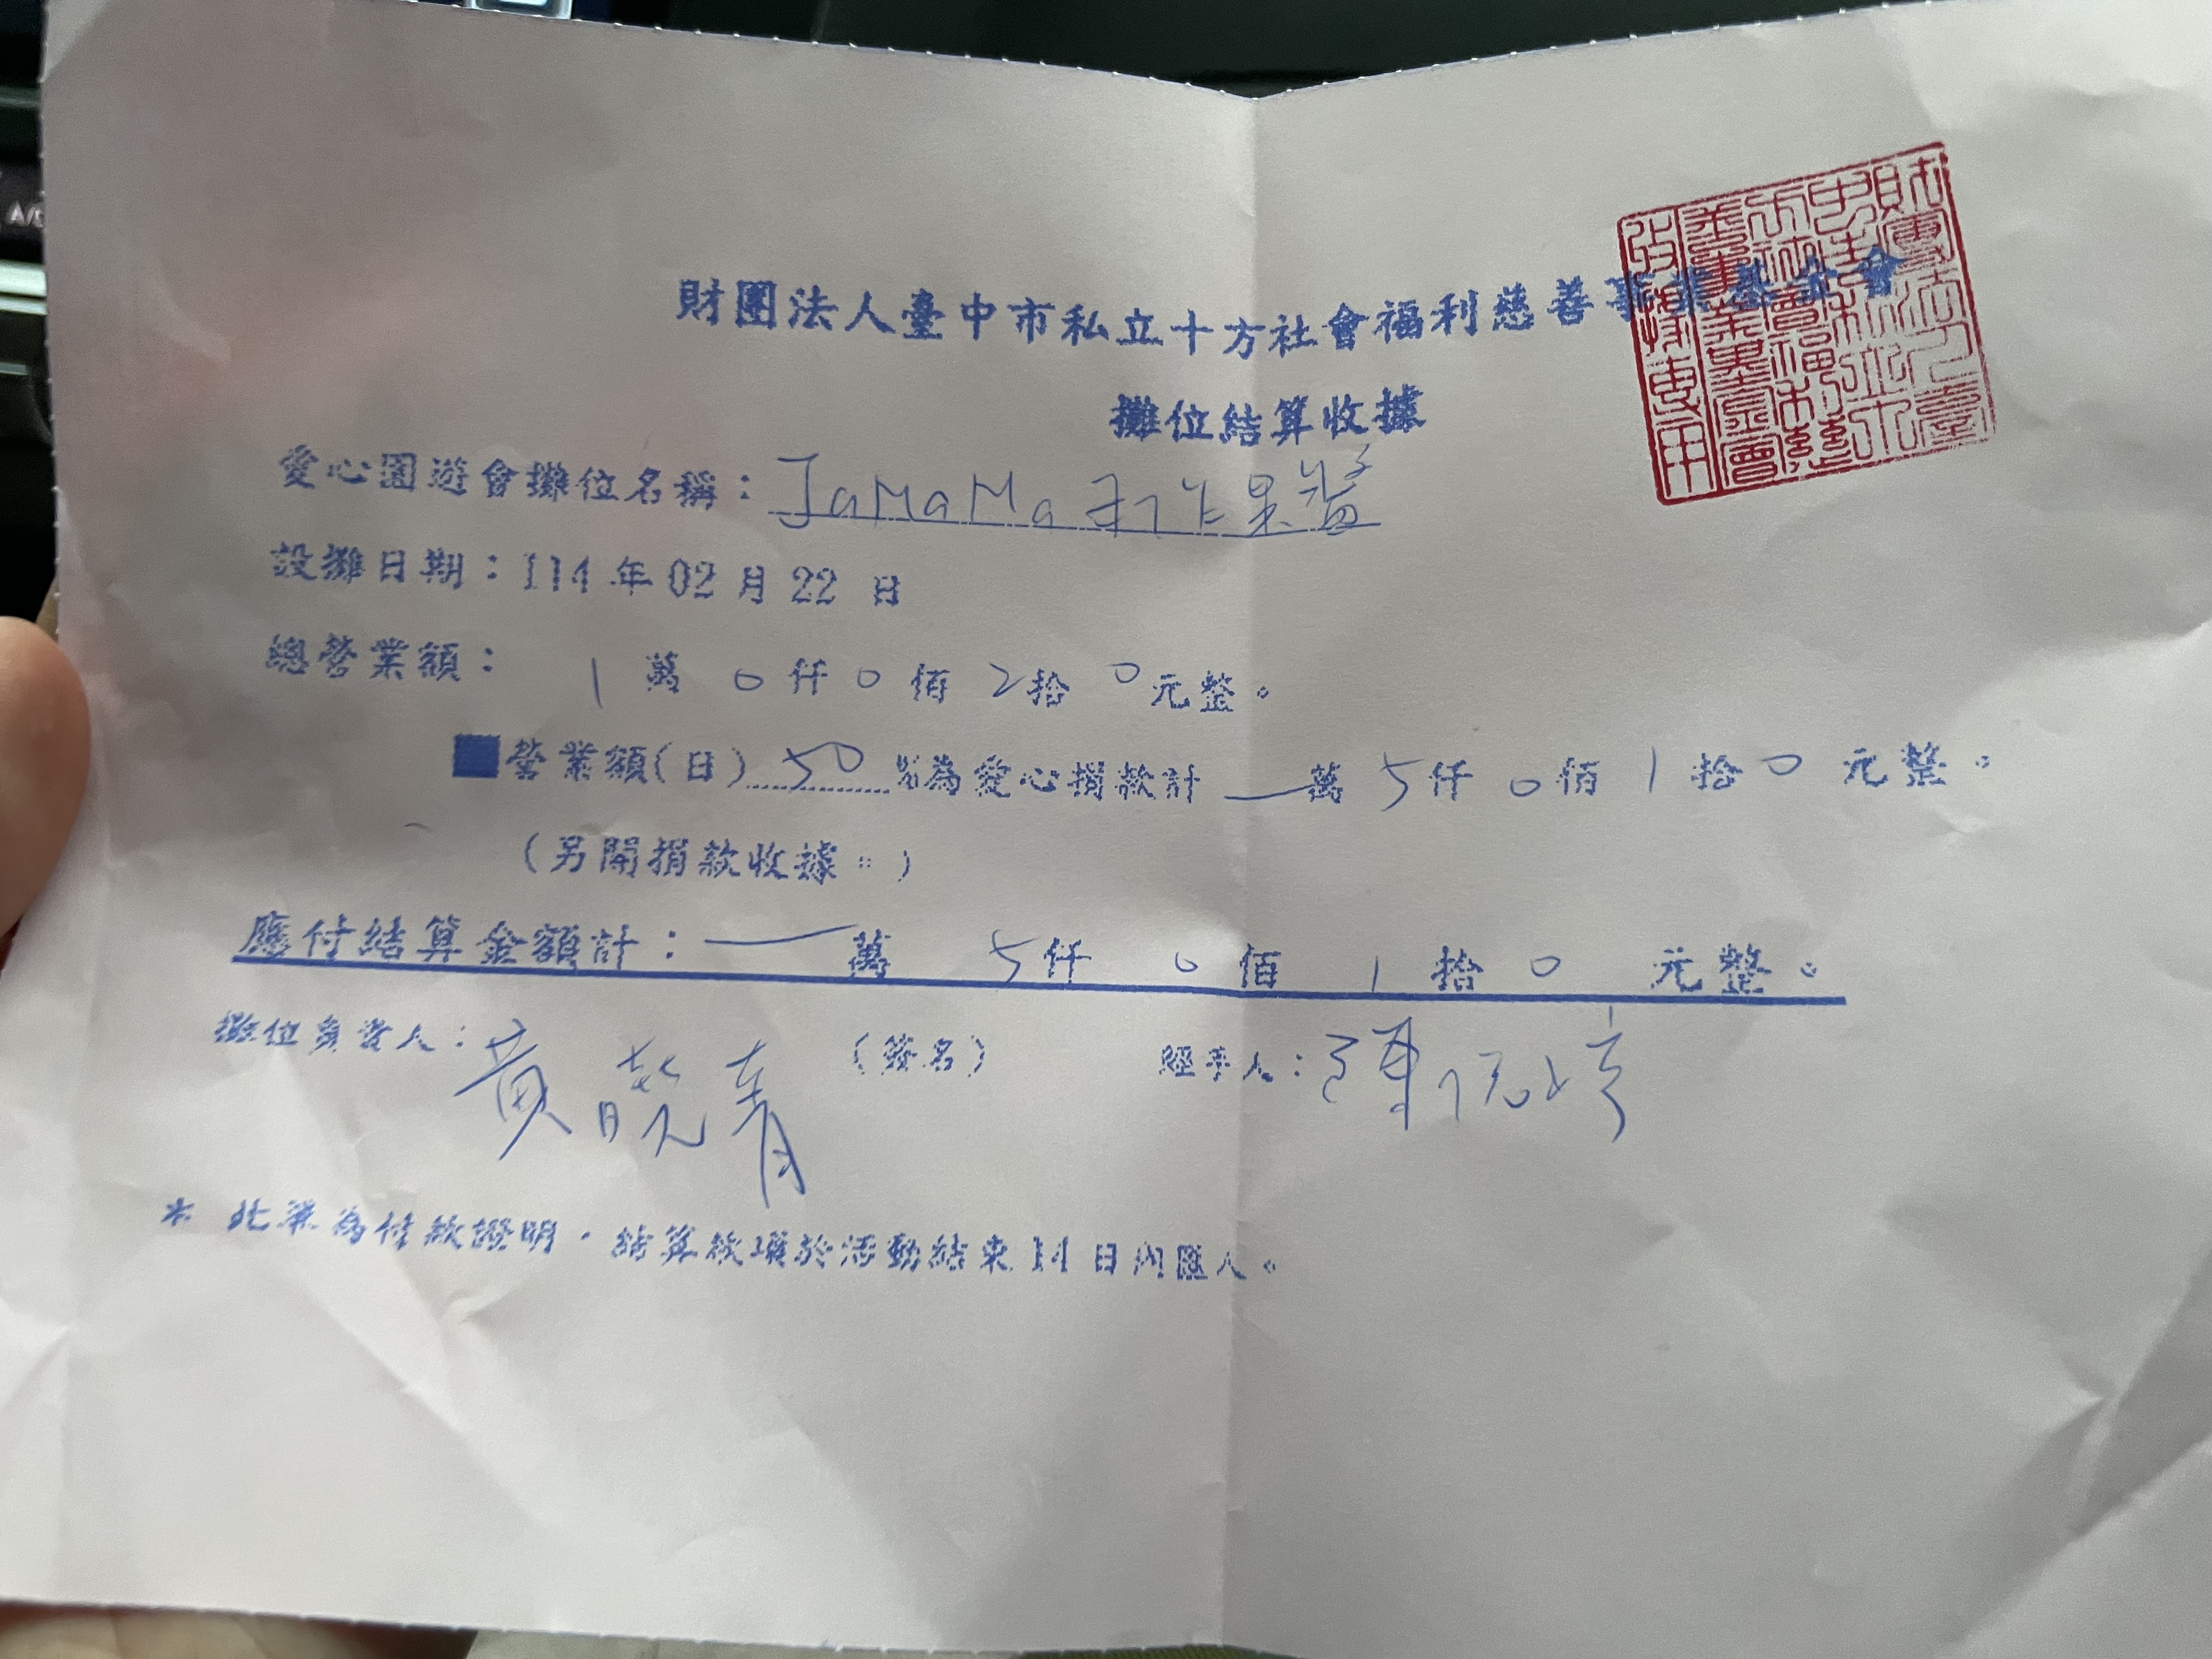 財團法人臺中市私立十方社會福利慈善事業基金會
攤位結算收據
愛心園遊會攤位名稱：JaMaMa手作果醬
設攤日期：114 年 02 月 22 日
總營業額： 1 萬 0 仟 0 佰 2 拾 0 元整。
■營業額(日) 50 %為愛心捐款計 — 萬 5 仟 0 佰 1 拾 0 元整。
(另開捐款收據。)
應付結算金額計：— 萬 5 仟 0 佰 1 拾 0 元整。
攤位負責人：黃曉青 (簽名) 經手人：陳
* 此單為付款證明，結算款項於活動結束 14 日內匯入。
財團法人臺中市私立十方社會福利慈善事業基金會收據專用
A/C